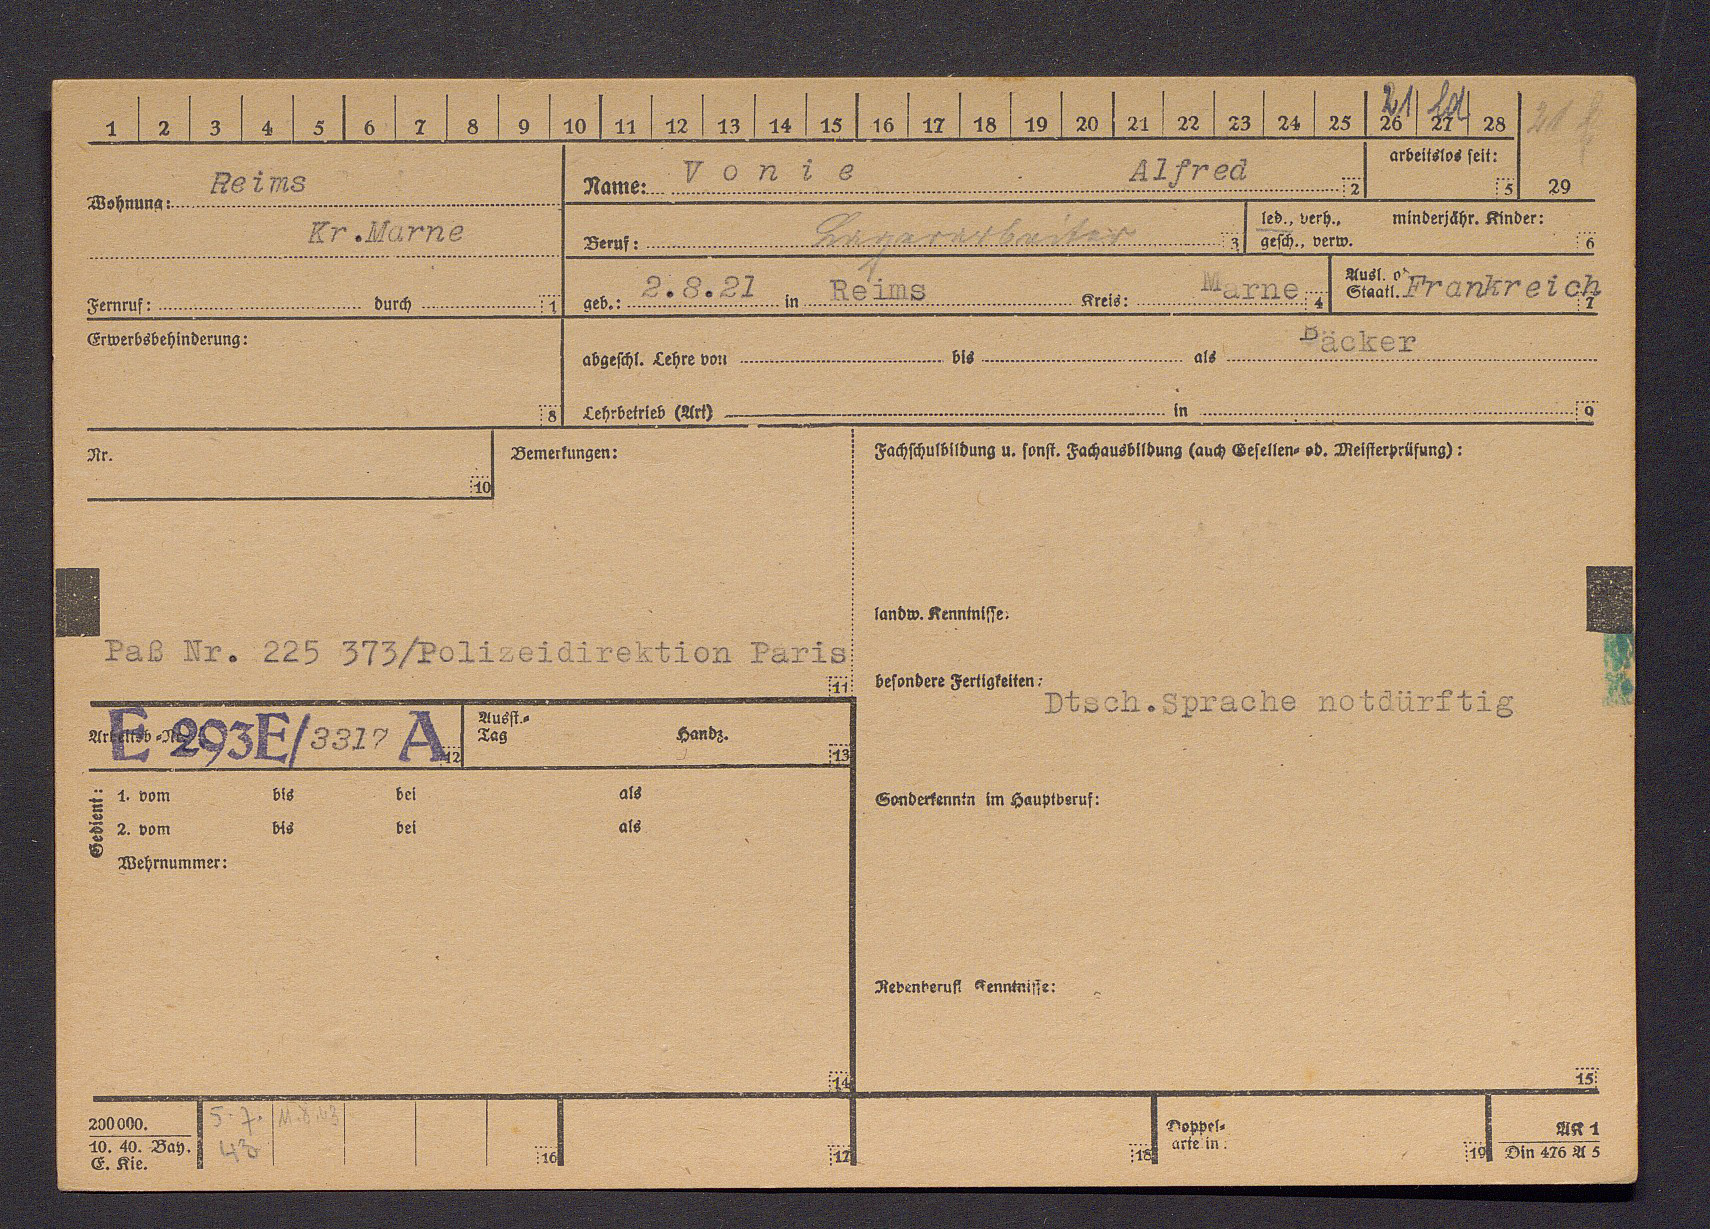 1 2 3 4 5 6 7 8 9 10 11 12 13 14 15 16 17 18 19 20 21 22 23 24 25 26 27 28
21
21
Wohnung: Reims
Kr.Marne
Fernruf: durch 1
Name: Vonie Alfred 2
arbeitslos seit: 5
29
Beruf: Lagerarbeiter 3
led., verh., gesch., verw.
minderjähr. Kinder: 6
geb.: 2.8.21 in Reims Kreis: Marne 4
Ausl. o' Staatl. Frankreich 7
Erwerbsbehinderung: 8
abgeschl. Lehre von bis als Bäcker
Lehrbetrieb (Art) in 9
Nr. 10
Bemerkungen:
Paß Nr. 225 373/Polizeidirektion Paris
11
Fachschulbildung u. sonst. Fachausbildung (auch Gesellen- od. Meisterprüfung):
landw. Kenntnisse:
besondere Fertigkeiten: Dtsch.Sprache notdürftig
Sonderkenntn im Hauptberuf:
Nebenberufl Kenntnisse:
15
Arbeitsb-Nr. E 293E/3317 A 12
Ausst.-Tag Handz. 13
Gedient:
1. vom bis bei als
2. vom bis bei als
Wehrnummer:
14
200000.
10. 40. Bay.
E. Kie.
5.7.
43
11.8.43
16
17
18
Doppel-
arte in: 19
AK 1
Din 476 A 5